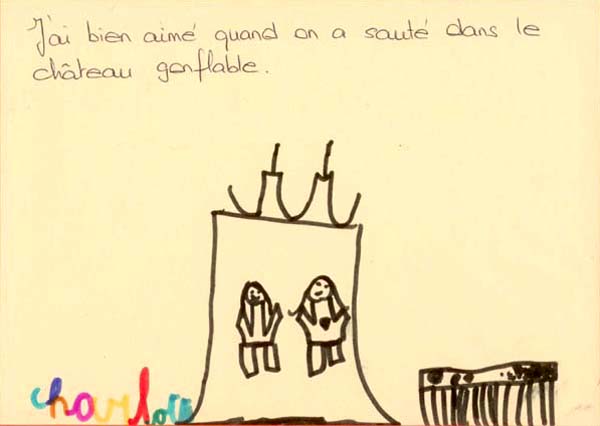 J'ai bien aimé quand on a sauté dans le
château gonflable.
charlotte